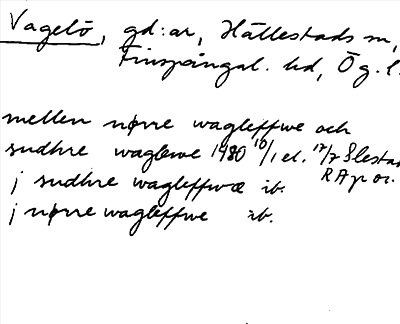 Vagelö, gd:ar, Hällestads sn,
Finspångal. hd, Ög. l.
mellen nørre wagleffwe och
sudhre waglewe 1480 10/1 el. 17/7 Slestad
RAp or.
j sudhre wagleffwæ ib.
j nørre wagleffwe ib.